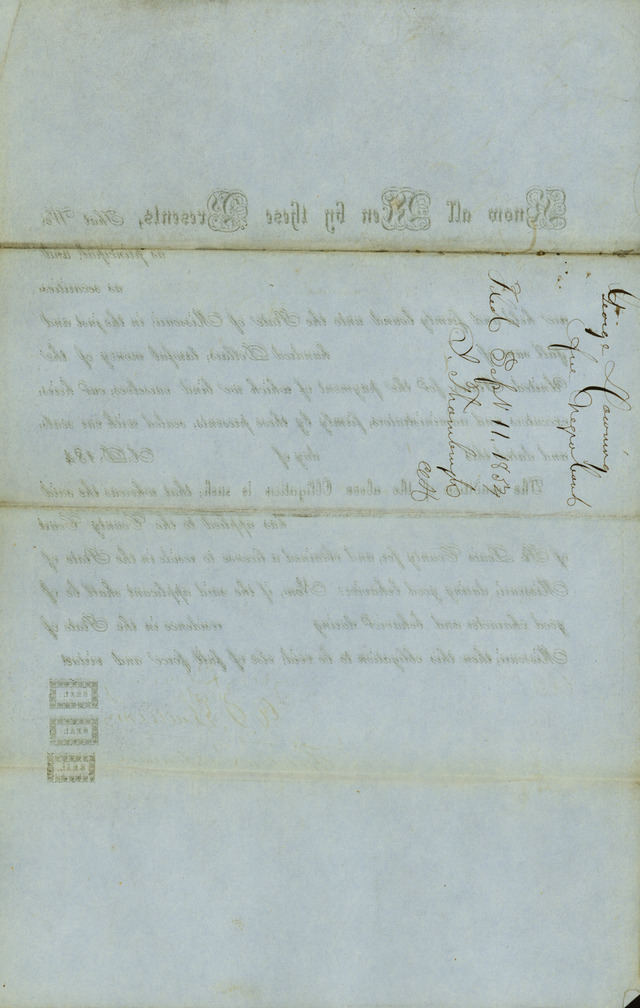 George
free Negro bond
Filed Sept 11. 1852
Know all Men by these Presents, That We,
as principal, and
as securities
are held and firmly bound unto the State of Missouri in the just and
full sum of hundred Dollars, lawful money of the
United States, for the payment of which we bind ourselves, our heirs,
executors and administrators, firmly by these presents, sealed with our seals,
and dated this day of A.D. 184
The Condition of the above Obligation is such; that whereas the said
has applied to the County Court
of St. Louis County for, and obtained a license to reside in the State of
Missouri, during good behavior: Now, if the said applicant shall be of
good character and behavior during residence in the State of
Missouri, then this obligation to be void, else of full force and virtue
SEAL
SEAL
SEAL